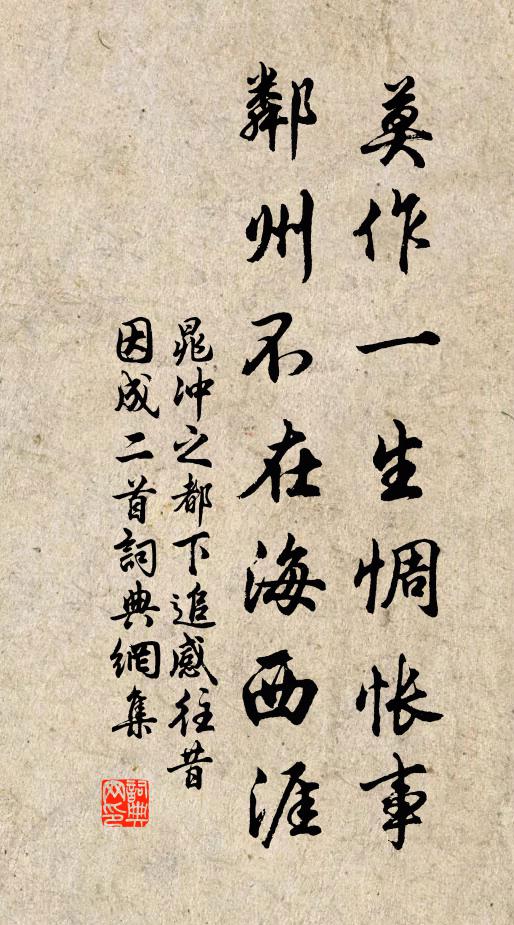 莫作一生惆悵事
鄰州不在海西涯
晁沖之都下追感往昔
因成二首詞典網集
詞典網印